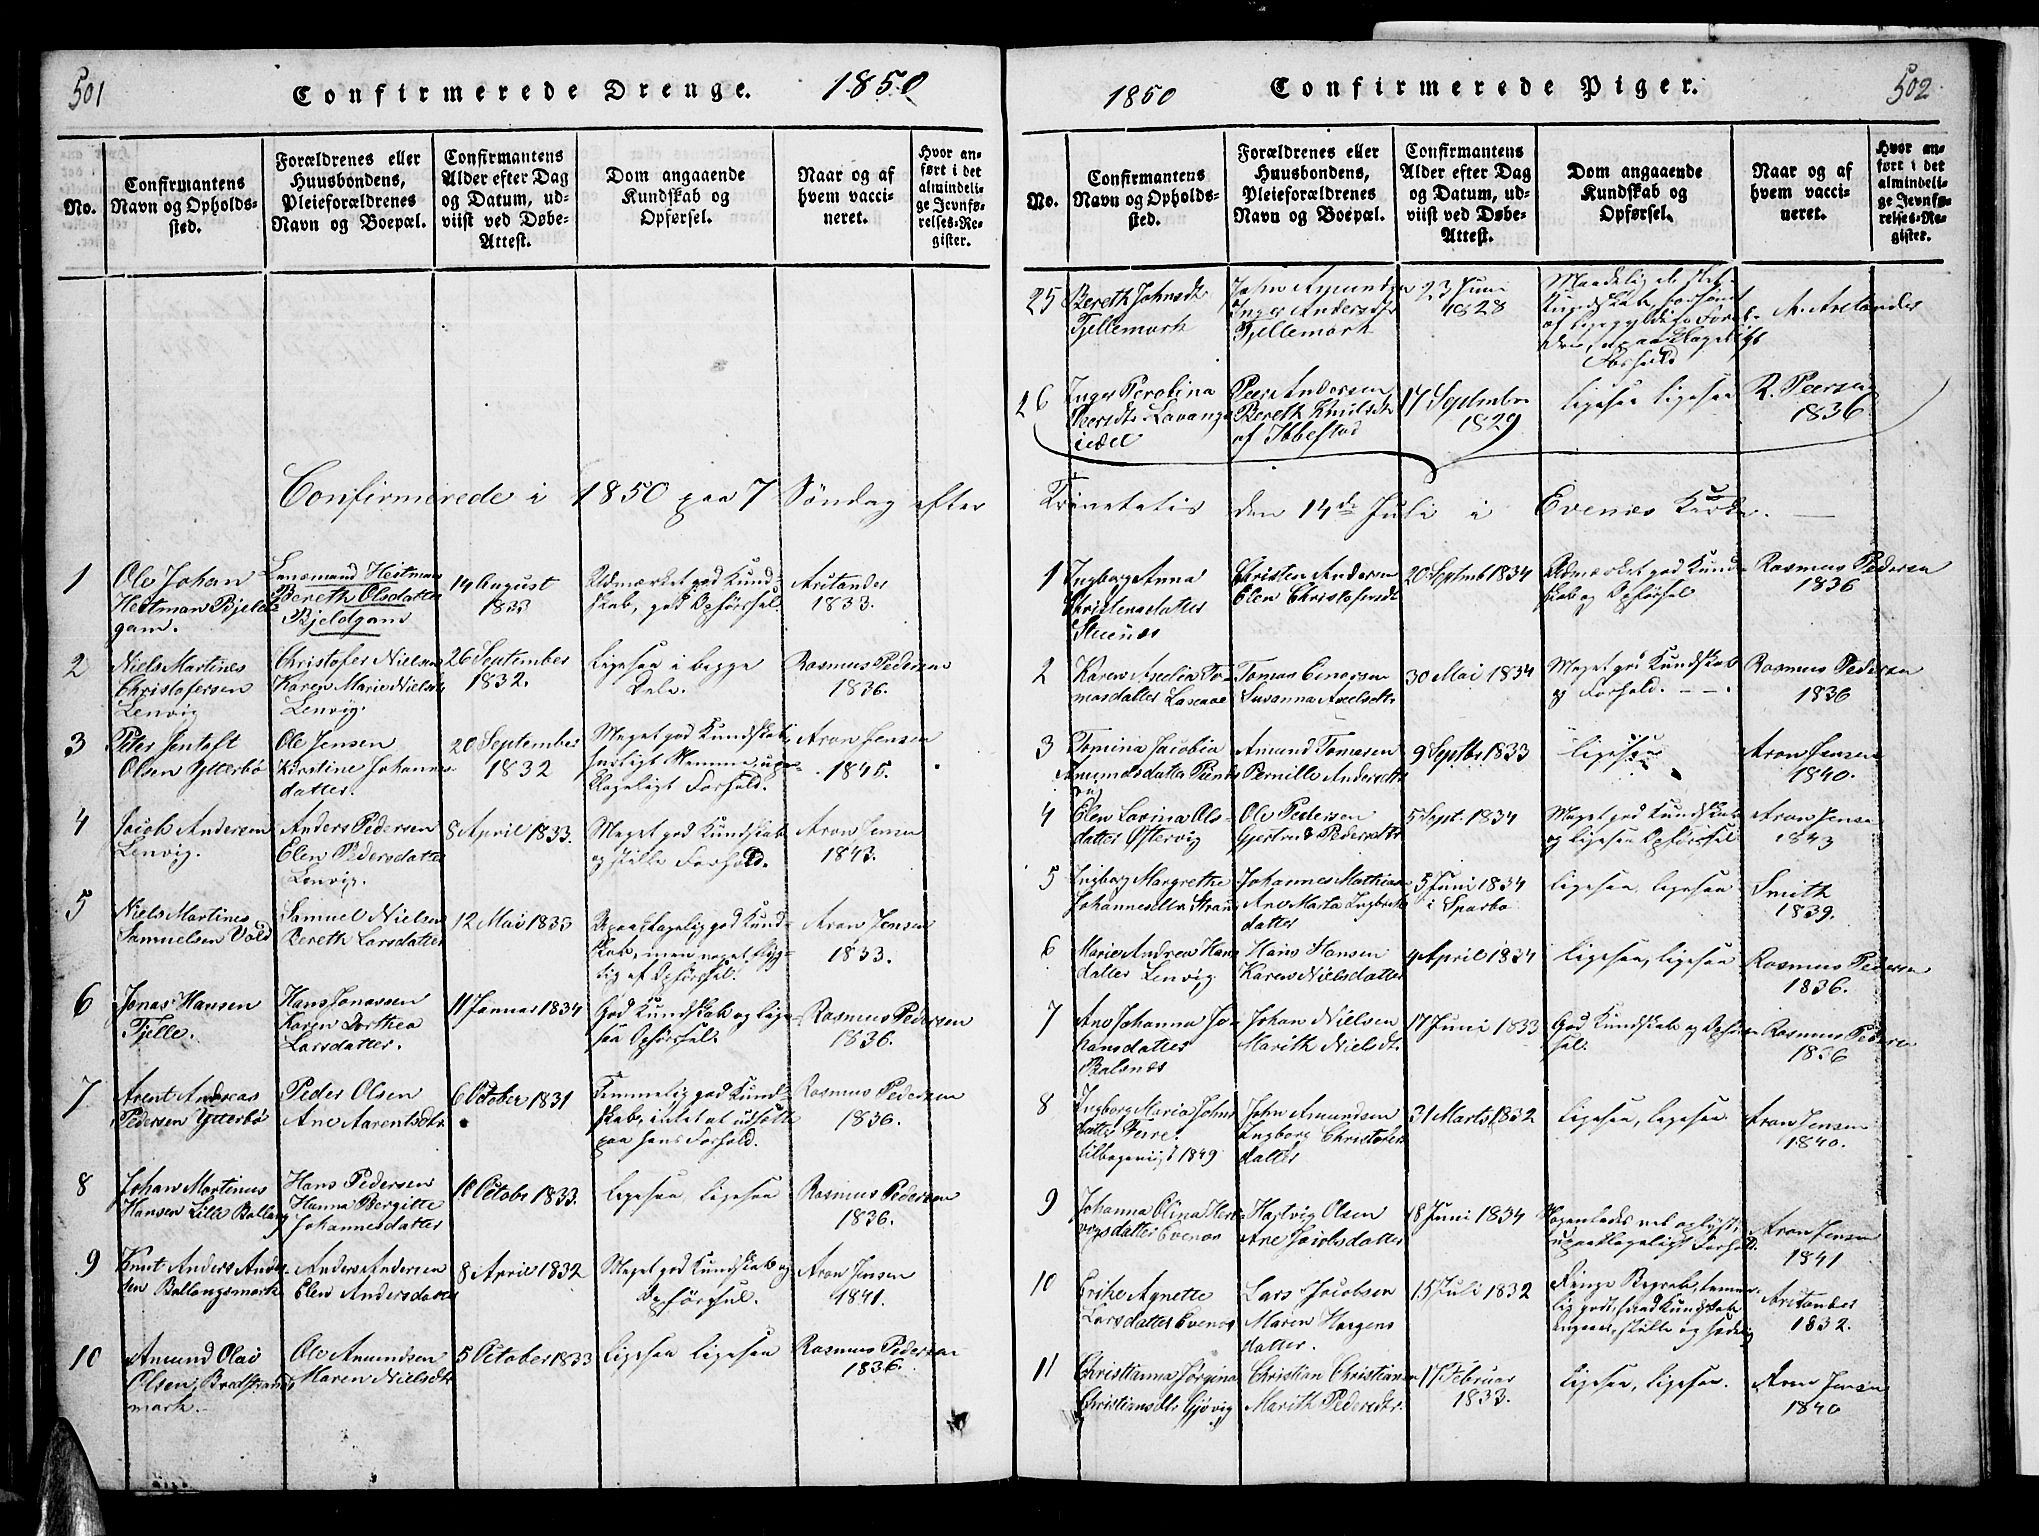 501
Confirmerede Drenge.
1850
No.
Confirmantens
Navn og Opholds-
sted.
Forældrenes eller
Huusbondens,
Pleieforældrenes
Navn og Boepæl.
Confirmantens
Alder efter Dag
og Datum, ud-
viist ved Døbe-
Attest.
Dom angaaende
Kundskab og
Opførsel.
Naar og af
hvem vacci-
neret.
Hvor an-
ført i det
almindeli-
ge Jevnfø-
relses-Re-
gister.
Confirmerede i 1850 paa 7 Søndag efter
1
Ole Johan
Heitman Bjeld-
gam.
Lensmand Heitman
Bereth Olsdatter
Bjeldgam
14 August
1833
Udmærket god Kund-
skab, god Opførsel.
Aristander
1833.
2
Niels Martines
Christofersen
Lenvig
Christofer Nielsen
Karen Marie Nielsdtr
Lenvig.
26 September
1832.
Ligesaa i begge
Dele.
Rasmus Pedersen
1836.
3
Peter Jentoft
Olsen Ytterbø
Ole Jensen
Kirstine Johannes-
datter.
20 September
1832
Meget god Kundskab,
hurtigt Nemme, upaa-
klageligt Forhold.
Aron Jensen
1845.
4
Jacob Andersen
Lenvig.
Anders Pedersen
Elen Pedersdatter
Lenvig.
8 April 1833.
Meget god Kundskab
og stille Forhold.
Aron Jensen
1843.
5
Niels Martines
Samuelsen Vold
Samuel Nielsen
Bereth Larsdatter
12 Mai 1833
Upaaklagelig god Kund-
skab, men noget
af Opførsel.
Aron Jensen
1833.
6
Jonas Hansen
Fjelle.
Hans Jonassen
Karen Dorthea
Larsdatter.
11 Januar 1834
God Kundskab og lige-
saa Opførsel.
Rasmus Pedersen
1836.
7
Arent Andreas
Pedersen Ytterbø
Peder Olsen
Ane Aarentsdtr
6 October 1831
Temmelig god Kund-
skab, intet at udsætte
paa hans Forhold.
Rasmus Pedersen
1836.
8
Johan Martinus
Hansen Lille Ballang
Hans Pedersen
Hanna Bergitte
Johannesdatter
10 October 1833.
Ligesaa, ligesaa
Rasmus Pedersen
1836.
9
Knut Anders Ander-
sen Ballangsmark
Anders Andersen
Elen Andersdatter
8 April 1832
Meget god Kundskab og
Opførsel.
Aron Jensen
1841.
10
Amund Olai
Olsen, Bredstrand-
mark.
Ole Amundsen
Maren Nielsdtr
5 October 1833
Ligesaa ligesaa
Rasmus Pedersen
1836.
1850
Confirmerede Piger.
502
No.
Confirmantens
Navn og Opholds-
sted.
Forældrenes eller
Huusbondens,
Pleieforældrenes
Navn og Boepæl.
Confirmantens
Alder efter Dag
og Datum, ud-
viist ved Døbe-
Attest.
Dom angaaende
Kundskab og
Opførsel.
Naar og af
hvem vacci-
neret.
Hvor an-
ført i det
almindeli-
ge Jevnfø-
relses-Re-
gister.
25
Bereth Johnsdtr
Fjellemark
John Amundsen
Inger Andersdtr
Fjellemark
23 Juni
1828
Maadelig
Kundskab, forsømt
af ligegyldige Foræl-
dre, upaaklageligt
Forhold
A. Aristander
26
Inger Perolina
Peersdtr Lavangs-
eidet
Peer Andersen
Bereth Knudsdtr
af Ibbestad
17 September
1829
Ligesaa ligesaa
R. Peersen
1836
Trinetatis den 14de Juli i Evenæs Kirke.
1
Ingborg Anna
Christensdatter
Stuenæs
Christen Andersen
Elen Christofersdtr
20 Septemb 1834
Udmærket god Kund-
skab og Opførsel
Rasmus Pedersen
1836
2
Karen Axelia To-
masdatter
Tomas Einersen
Susanna Axelsdtr
30 Mai 1834
Meget god Kundskab
og Forhold.
Rasmus Pedersen
1836
3
Tomina Jacobia
Amundsdatter
Amund Tomesen
Pernille Andersdtr
9 Septbr 1833
Ligesaa
Aron Jensen
1840.
4
Elen Lovina Ols-
datter Østervig
Ole Pedersen
Gjertrud Pedersdtr
5 Sept. 1834
Meget god Kundskab
og ligesaa Opførsel
Aron Jensen
1843
5
Ingborg Margrethe
Johannesdtr Strand
Johannes Mathias
Ane Marta Ingbrits-
datter
5 Juni 1834
i Sparbo
Ligesaa, ligesaa
Smith
1839.
6
Marie Andrea Hans-
datter Lenvig
Hans Hansen
Karen Nielsdatter
4 April 1834
Ligesaa, ligesaa
Rasmus Pedersen
1836.
7
Ane Johanna Jo-
hansdatter
Balsnes
Johan Nielsen
Marith Nielsdtr.
17 Juni 1833
God Kundskab og Opfør-
sel.
Rasmus Pedersen
1836
8
Ingborg Maria Johns-
datter
tilbageviist 1849
John Amundsen
Ingborg Christofers-
datter
31 Marts 1832
Ligesaa, ligesaa
Aron Jensen
1840.
9
Johanna Olina Hart-
vigsdatter Evenæs
Hartvig Olsen
Ane Jacobsdatter
18 Juni 1834
Nogenledes vel oplyst,
upaaklageligt Forhold.
Aron Jensen
1841
10
Erike Agnette
Larsdatter Evenæs
Lars Jacobsen
Maren Horgens
datter.
15 Juli 1832
Ringe Begreb, temme-
lig god Kundskab
stille og sædelig
Aristander
1832.
11
Christianna Jørgina
Christiansdtr Gjøvig
Christian Christiansen
Marith Pedersdtr.
17 Februar
1833.
Ligesaa, ligesaa.
Aron Jensen
1840